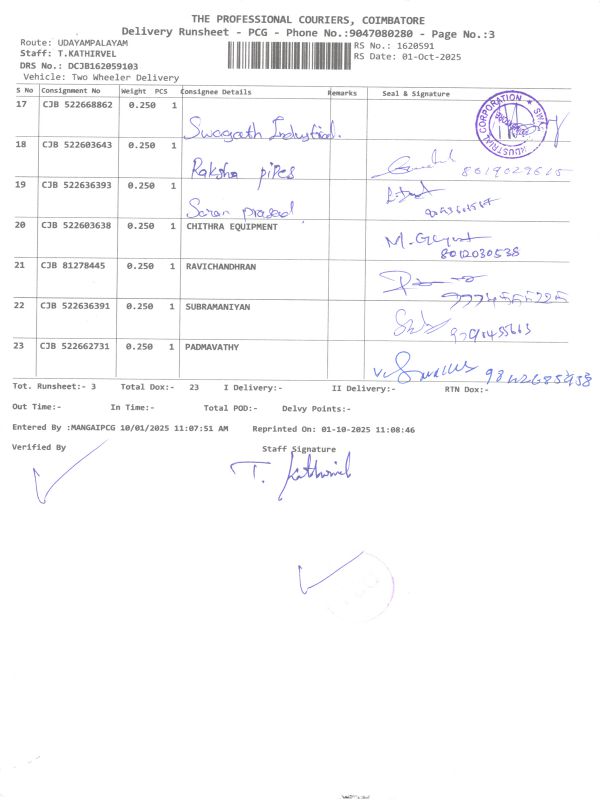 THE PROFESSIONAL COURIERS, COIMBATORE
Delivery Runsheet - PCG - Phone No.:9047080280 - Page No.:3
Route: UDAYAMPALAYAM
Staff: T.KATHIRVEL
RS No.: 1620591
RS Date: 01-Oct-2025
DRS No.: DCJB162059103
Vehicle: Two Wheeler Delivery
S No Consignment No Weight PCS Consignee Details Remarks Seal & Signature
17 CJB 522668862 0.250 1 Swagath Industrial.
CORPORATION ★ SWA
INDUSTRIAL
18 CJB 522603643 0.250 1 Raksha pipes 8019029615
19 CJB 522636393 0.250 1 Saran prasad
20 CJB 522603638 0.250 1 CHITHRA EQUIPMENT
8012030538
21 CJB 81278445 0.250 1 RAVICHANDHRAN
22 CJB 522636391 0.250 1 SUBRAMANIYAN
23 CJB 522662731 0.250 1 PADMAVATHY
Tot. Runsheet:- 3 Total Dox:- 23 I Delivery:- II Delivery:- RTN Dox:-
Out Time:- In Time:- Total POD:- Delvy Points:-
Entered By :MANGAIPCG 10/01/2025 11:07:51 AM Reprinted On: 01-10-2025 11:08:46
Verified By Staff Signature
T. Kathirvel